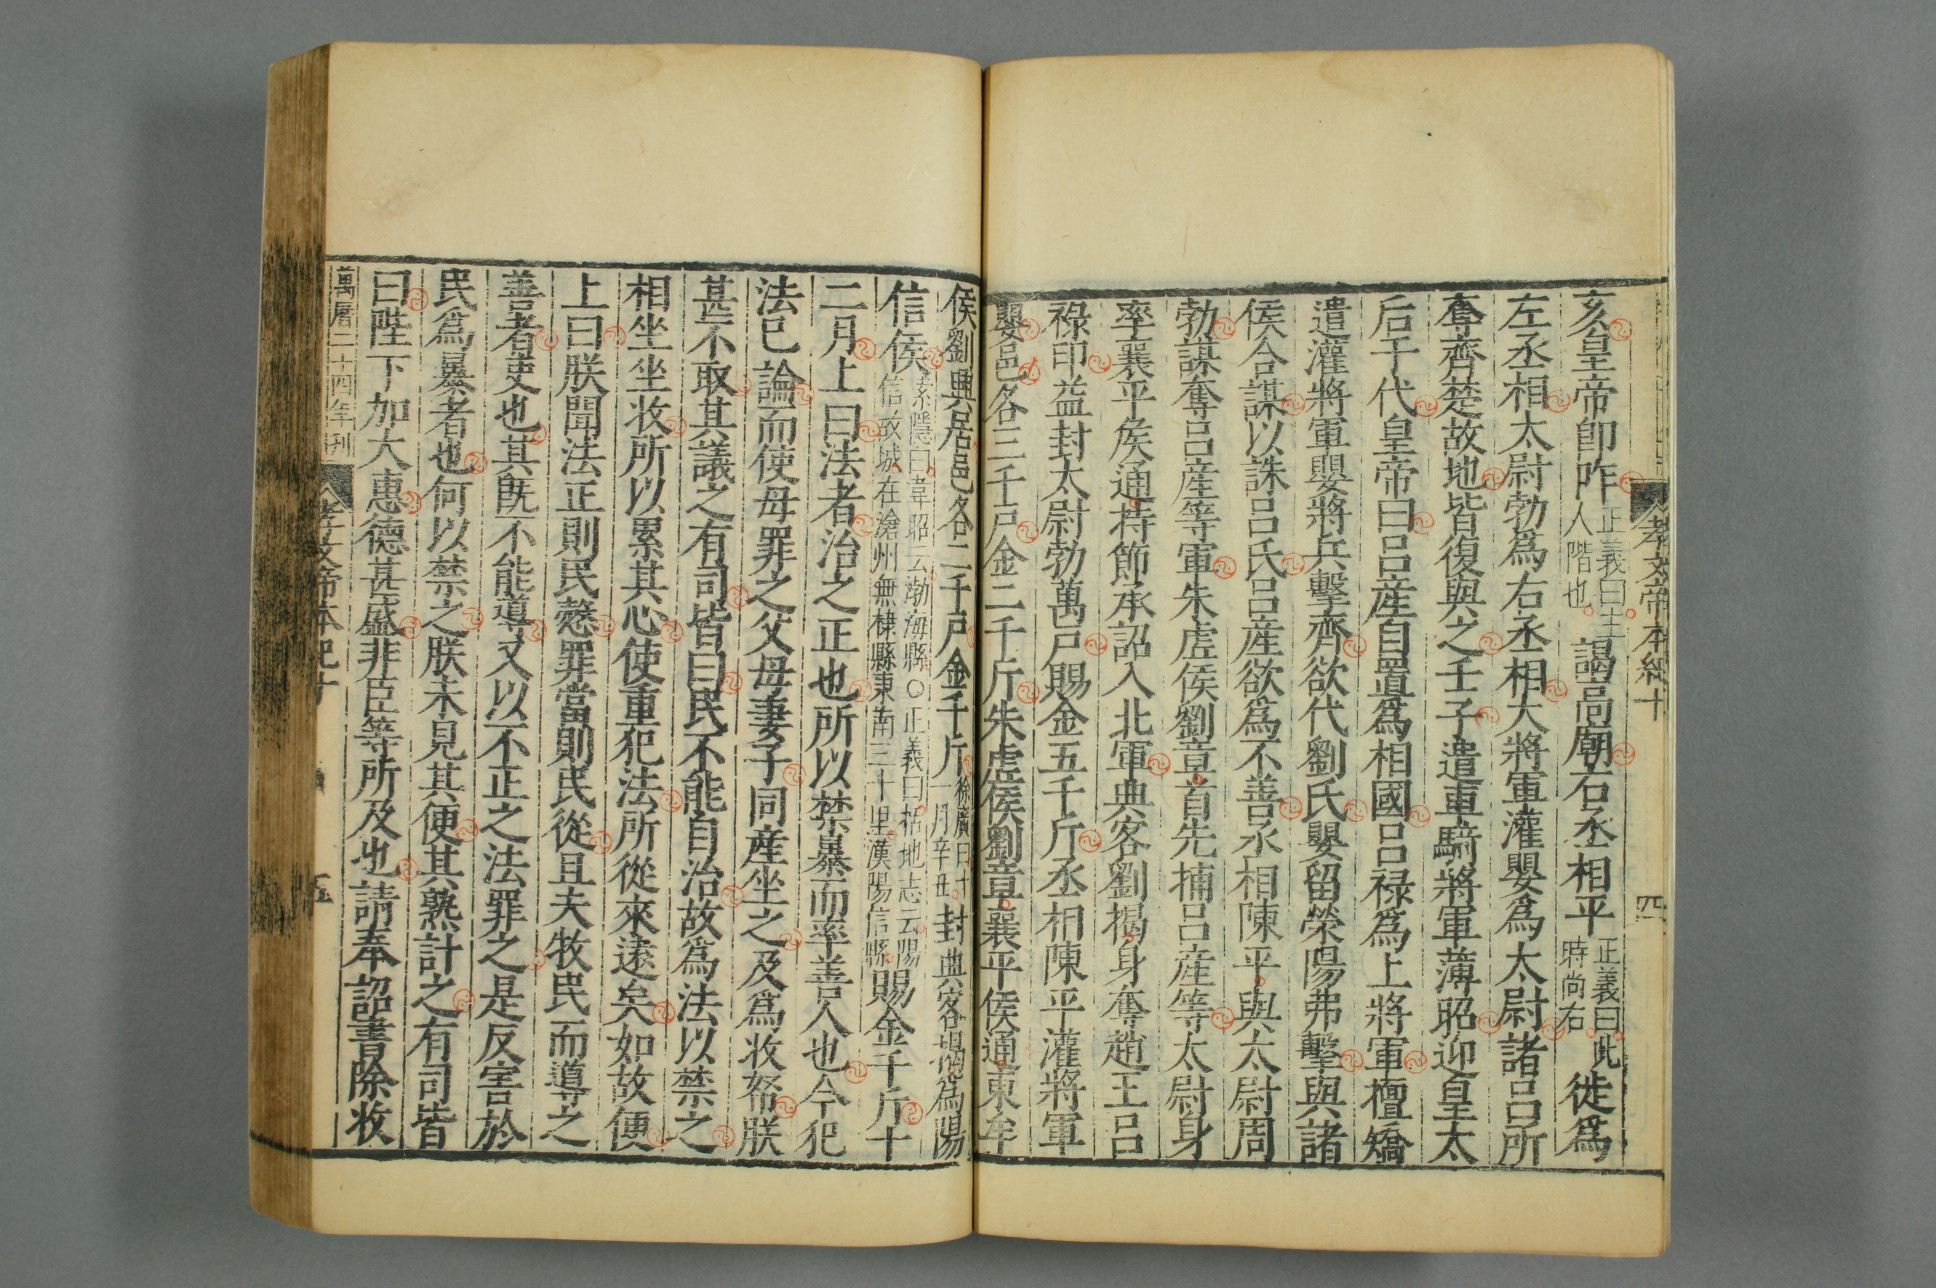 孝文帝本紀十
四
亥皇帝即阼正義曰主人階也謁高廟右丞相平正義曰此時尚右徙為
左丞相太尉勃為右丞相大將軍灌嬰為太尉諸呂所
奪齊楚故地皆復與之壬子遣車騎將軍薄昭迎皇太
后于代皇帝曰呂產自置為相國呂祿為上將軍擅矯
遣灌將軍嬰將兵擊齊欲代劉氏嬰留滎陽弗擊與諸
侯合謀以誅呂氏呂產欲為不善丞相陳平與太尉周
勃謀奪呂產等軍朱虛侯劉章首先捕呂產等太尉身
率襄平侯通持節承詔入北軍典客劉揭身奪趙王呂
祿印益封太尉勃萬戶賜金五千斤丞相陳平灌將軍
嬰邑各三千戶金二千斤朱虛侯劉章襄平侯通東牟
侯劉興居邑各二千戶金千斤徐廣曰十一月辛丑封典客揭為陽
信侯索隱曰韋昭云渤海縣○正義曰括地志云陽信故城在滄州無棣縣東南三十里漢陽信縣賜金千斤十
二月上曰法者治之正也所以禁暴而率善人也今犯
法已論而使毋罪之父母妻子同產坐之及為收帑朕
甚不取其議之有司皆曰民不能自治故為法以禁之
相坐坐收所以累其心使重犯法所從來遠矣如故便
上曰朕聞法正則民愨罪當則民從且夫牧民而導之
善者吏也其既不能導又以不正之法罪之是反害於
民為暴者也何以禁之朕未見其便其熟計之有司皆
曰陛下加大惠德甚盛非臣等所及也請奉詔書除收
萬曆二十四年刊
孝文帝本紀十
五